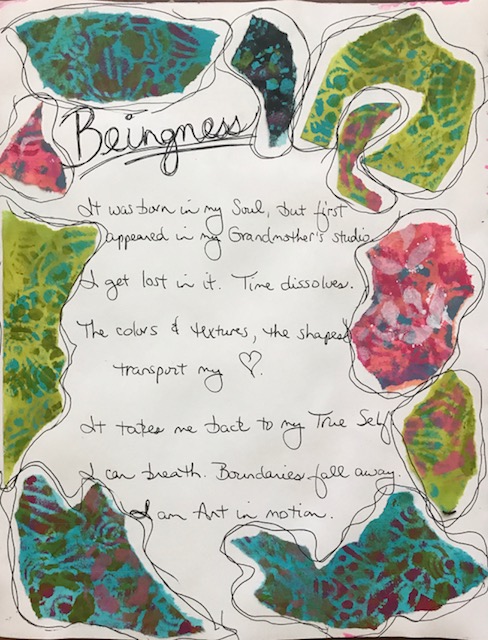 Beingness
It was born in my Soul, but first
appeared in my Grandmother's studio.
I get lost in it. Time dissolves.
The colors & textures, the shapes
transport my ♡.
It takes me back to my True Self
I can breath. Boundaries fall away.
I am Art in motion.